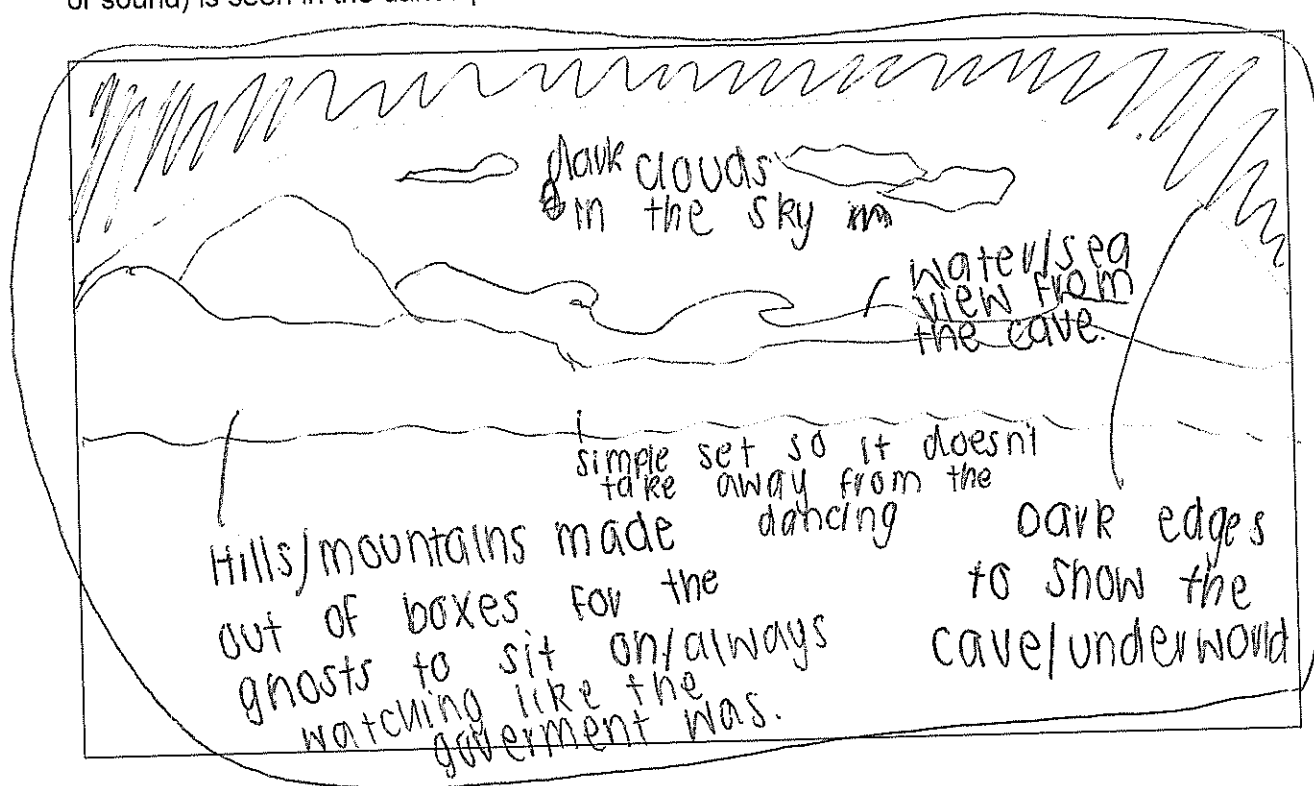 or sound) is seen in the
dark clouds
in the sky
water/sea
view from
the cave.
simple set so it doesnt
take away from the
dancing
Hills/mountains made
out of boxes for the
ghosts to sit on/always
watching like the
goverment was.
Dark edges
to show the
cave/underworld